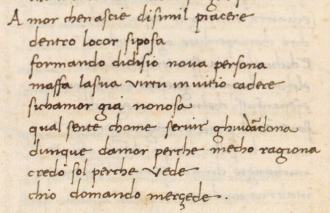 Amor che nascie disimil piacere
dentro locor siposa
formando didisio nova persona
massa lasua virtu invitio cadere
sichamor gia nonosa
qual sente chome servir ghuidadona
dunque damor perche mecho ragiona
credo sol perche vede
chio domando merçede.